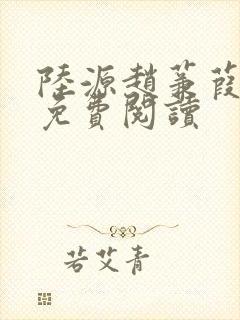 陸源趙蒹葭
免費閱讀
若艾青